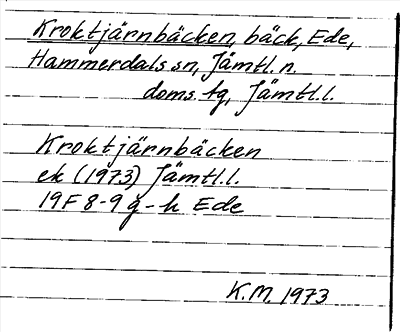 Kroktjärnbäcken, bäck, Ede,
Hammerdals sn, Jämtl. n.
doms. tg, Jämtl.l.
Kroktjärnbäcken
ek (1973) Jämtl.l.
19F 8-9 g-h Ede
K.M. 1973